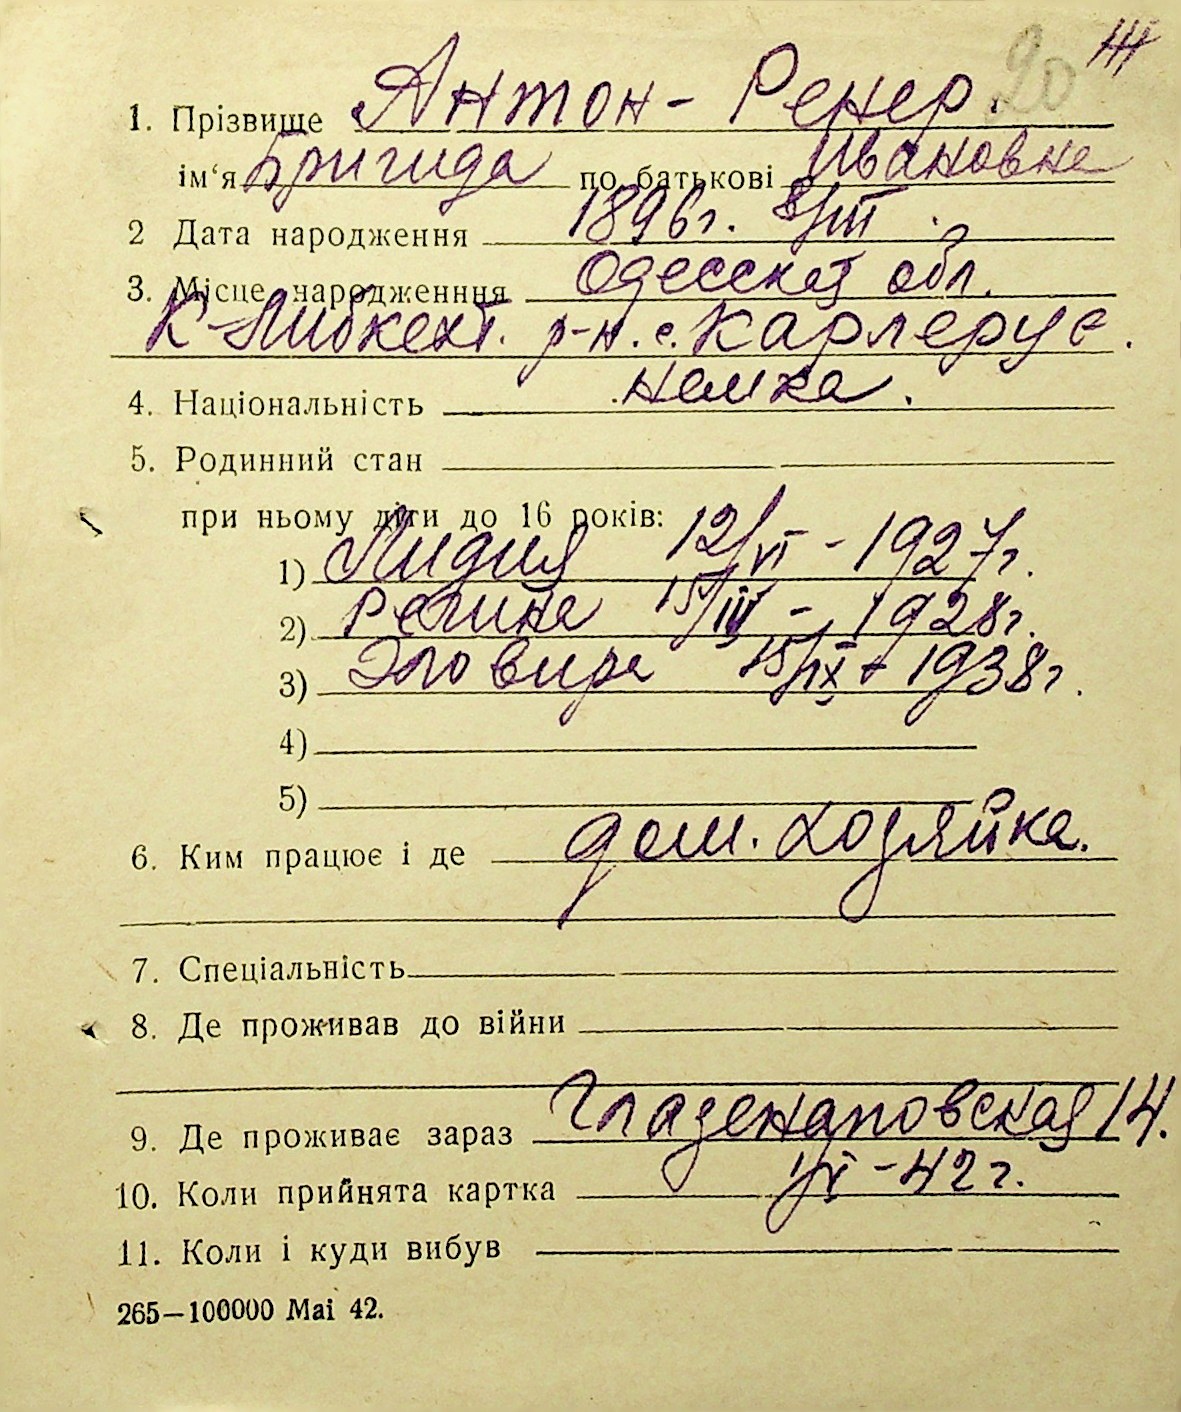 20
1. Прізвище Антон - Ренер.
ім‘я Бригида по батькові Ивановна
2 Дата народження 1896 г. 8/III
3. Місце народженння Одесская обл.
К-Либкехт. р-н. с. Карлеруе.
4. Національність немка.
5. Родинний стан
при ньому діти до 16 років:
1) Лидия 12/VI - 1927 г.
2) Регина 15/IV - 1928 г.
3) Эловира 15/IX - 1938 г.
4)
5)
6. Ким працює і де дом. хозяйка.
7. Спеціальність
8. Де проживав до війни
9. Де проживає зараз Гладенаповская 14.
10. Коли прийнята картка - 42 г.
11. Коли і куди вибув
265—100000 Mai 42.